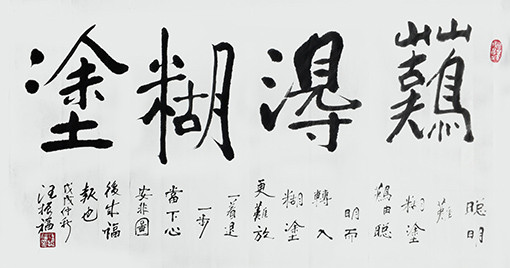 難得糊塗
聰明
難
糊塗
難由聰
明而
轉入
糊塗
更難放
一着退
一步
當下心
安非圖
後來福
報也
戊戌仲秋